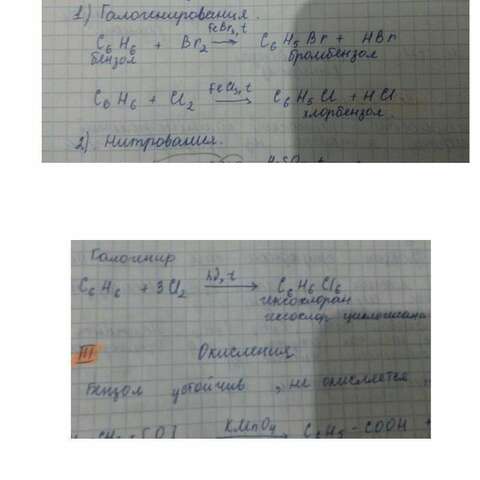 1) Галогенирования.
C6H6 + Br2 FeBr3, t → C6H5Br + HBr
бензол бромбензол
C6H6 + Cl2 FeCl3, t → C6H5Cl + HCl
хлорбензол.
2) Нитрования.
H2SO4 t
Галогенир
C6H6 + 3Cl2 t → C6H6Cl6
гексохлоран
III Окисления
Бензол устойчив, не окисляется,
KMnO4 → C6H5 - COOH +